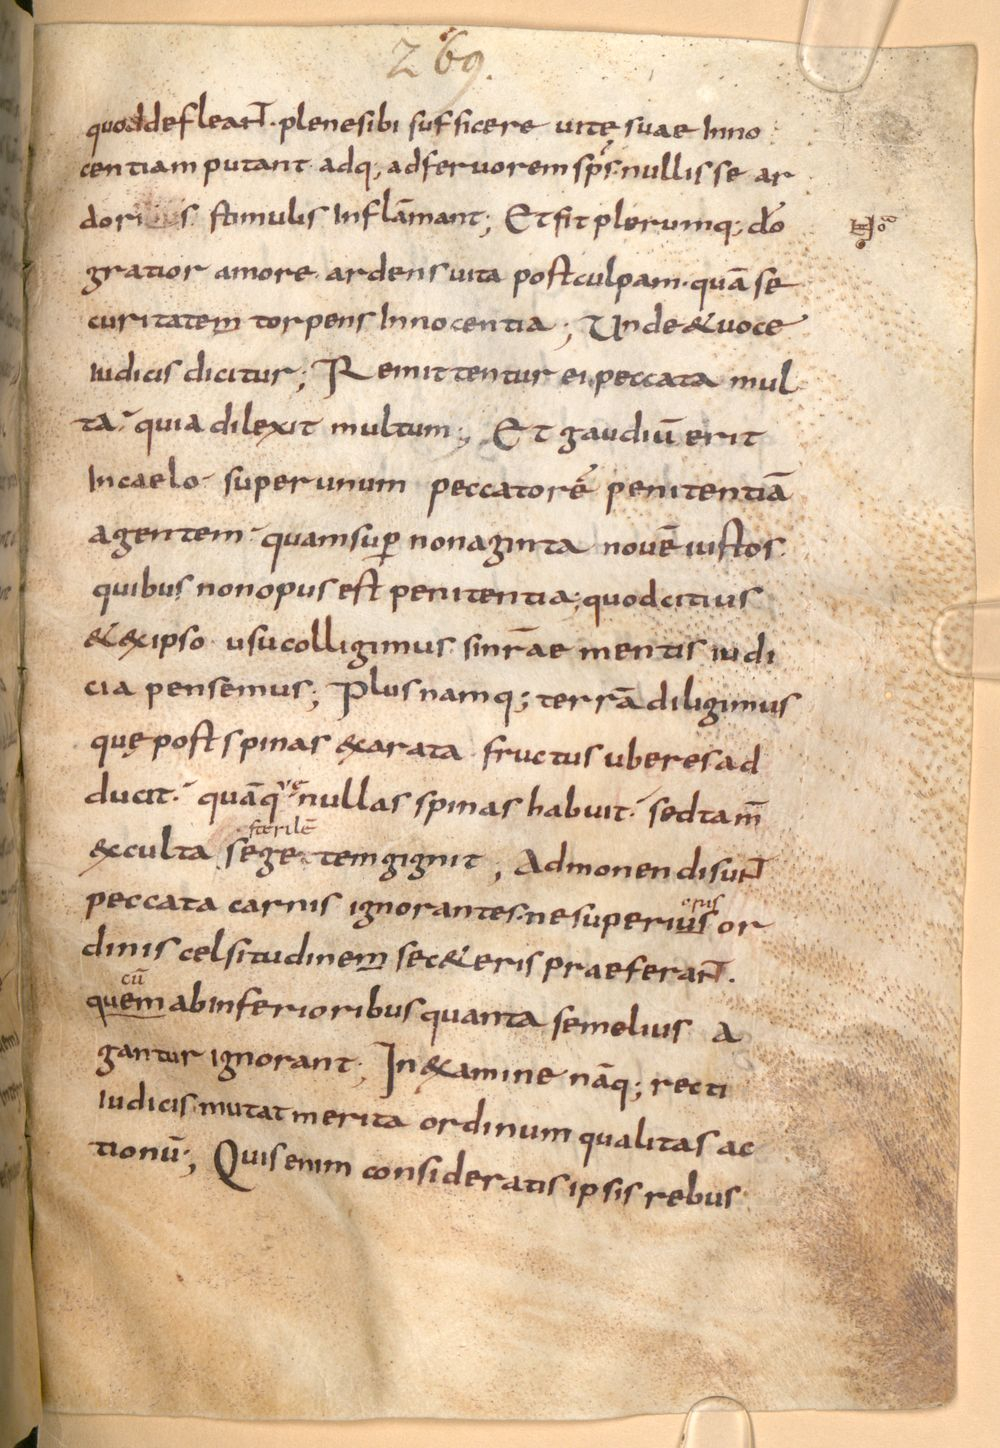 269.
quod defleat̄. plene sibi sufficere uitę suae Inno
centiam putant adq; ad feruorem sp̄s. nullis se ar
doris stimulis Inflāmant; Et fit plerumq; dō
gratior amore ardens uita post culpam. quā se
curitatem torpens Innocentia; Unde & uoce
iudicis dicitur; Remittentur ei peccata mul
ta. quia dilexit multum; Et gaudiū erit
In caelo super unum peccatorē penitentiā
agentem quam sup̄ nonaginta nouē iustos
quibus non opus est penitentia; quod citius
& exipso usu colligimus si nr̄ae mentis iudi
cia pensemus; Plus namq; terrā diligimus
quę post spinas exarata fructus uberes ad
ducit. quā q̨ nullas spinas habuit. sed tam̄
sterilē
exculta segetem gignit; Admonendi sunt̄
peccata carnis ignorantes. ne superius or
dinis celsitudinem sec&eris praeferant̄.
cū
quem ab inferioribus quanta se melius a
gantur ignorant; In examine nāq; recti
iudicis mutat merita ordinum qualitas ac
tionū; Quis enim consideratis ipsis rebus